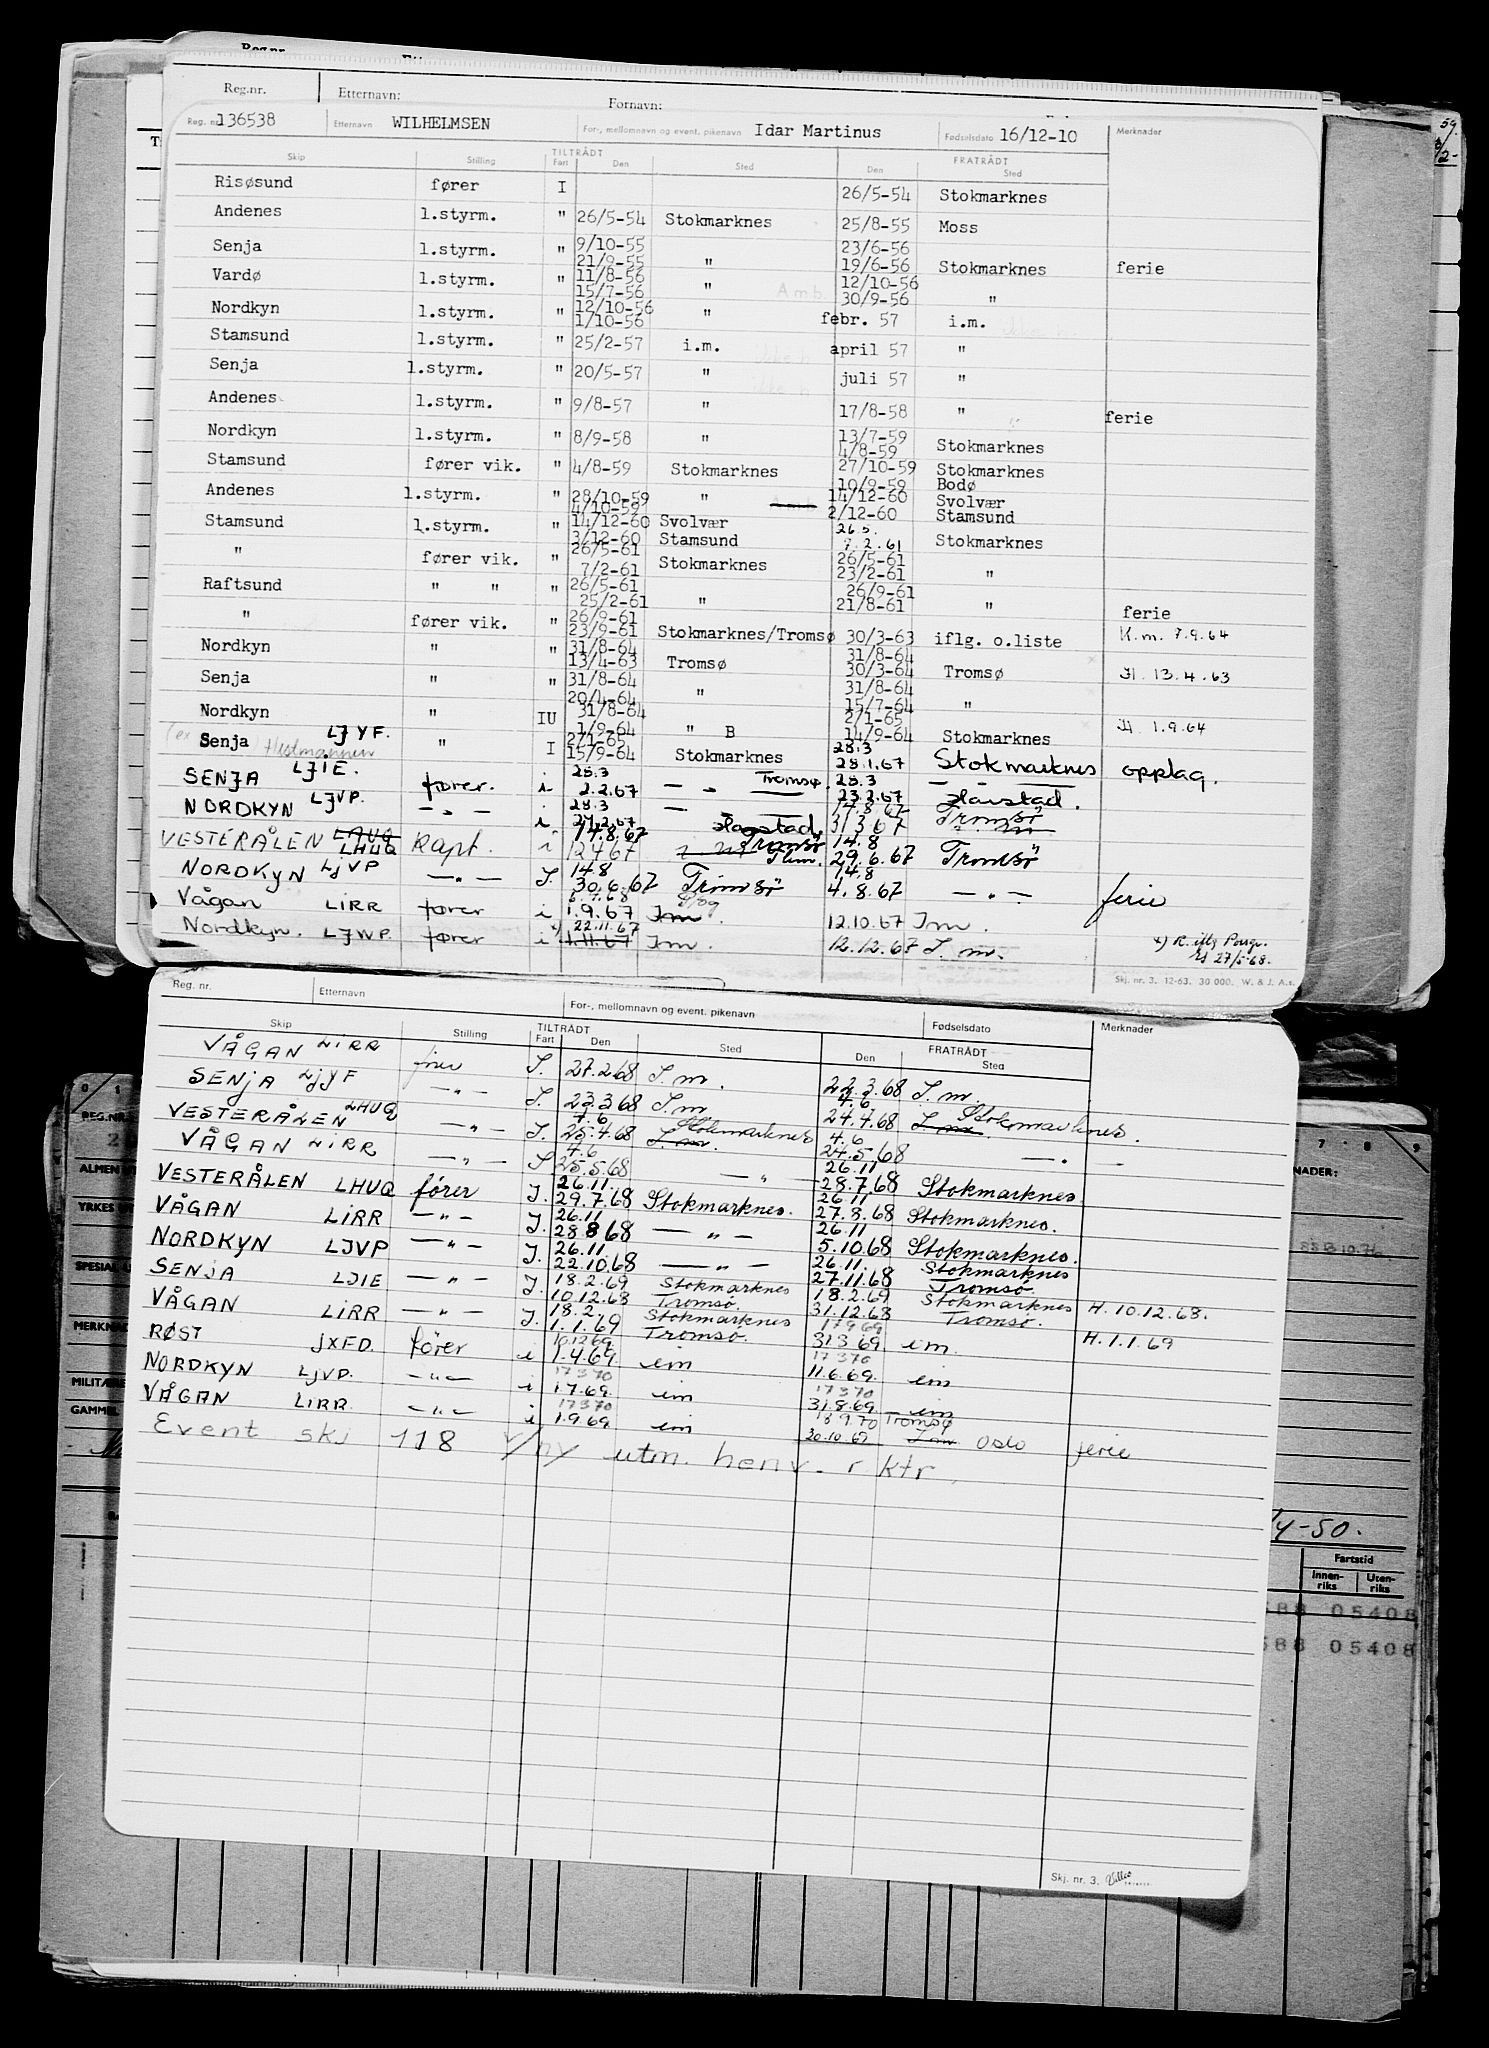 Reg.nr. Etternavn: Fornavn:
Reg. nr. 136538 Etternavn WILHELMSEN For-, mellomnavn og event. pikenavn Idar Martinus Fødselsdato 16/12-10 Merknader
Skip Stilling TILTRÅDT Fart Den Sted Den FRATRÅDT Sted
Risøsund fører I 26/5-54 Stokmarknes
Andenes 1.styrm. " 26/5-54 Stokmarknes 25/8-55 Moss
Senja 1.styrm. " 9/10-55 21/9-55 " 23/6-56 19/6-56 Stokmarknes ferie
Vardø 1.styrm. " 11/8-56 15/7-56 " 12/10-56 30/9-56 "
Nordkyn 1.styrm. " 12/10-56 1/10-56 " febr. 57 i.m.
Stamsund 1.styrm. " 25/2-57 i.m. april 57 "
Senja 1.styrm. " 20/5-57 " juli 57 "
Andenes 1.styrm. " 9/8-57 " 17/8-58 " ferie
Nordkyn 1.styrm. " 8/9-58 " 13/7-59 4/8-59 Stokmarknes
Stamsund fører vik. " 4/8-59 Stokmarknes 27/10-59 10/9-59 Stokmarknes Bodø
Andenes 1.styrm. " 28/10-59 4/10-59 " 14/12-60 2/12-60 Svolvær Stamsund
Stamsund 1.styrm. " 14/12-60 3/12-60 Svolvær Stamsund 26.5. 7.2.61 Stokmarknes
" fører vik. " 26/5-61 7/2-61 Stokmarknes 26/5-61 23/2-61 "
Raftsund " " " 26/5-61 25/2-61 " 26/9-61 21/8-61 " ferie
" fører vik. " 26/9-61 23/9-61 Stokmarknes/Tromsø 30/3-63 iflg. o.liste K.m. 7.9.64
Nordkyn " " 31/8-64 13/4-63 Tromsø 31/8-64 30/3-64 Tromsø H. 13.4.63
Senja " " 31/8-64 20/4-64 " 31/8-64 15/7-64 "
Nordkyn " IU 31/8-64 1/9-64 " B 2/1-65 14/9-64 Stokmarknes H 1.9.64
(ex Hestmannen) Senja LJYF. " I 2/1-65 15/9-64 Stokmarknes 28.3 28.1.67 Stokmarknes opplag.
SENJA LJIE. fører. i 28.3 2.2.67 — " — Tromsø 28.3 23.2.67 Harstad.
NORDKYN LJVP. — " — i 28.3 24.2.67 Harstad. 14.8.67 31.3.67 Tromsø
VESTERÅLEN LHUQ Kapt. i 14.8.67 12.4.67 Tromsø 14.8 29.6.67 Tromsø
NORDKYN LJVP — " — I. 14.8 30.6.67 Tromsø 14.8 4.8.67 — " — ferie
Vågan LIRR fører i 1.9.67 Im. 12.10.67 Im.
Nordkyn. LJWP. fører i x) 22.11.67 1.11.67 Im. 12.12.67 I.m. x) R.
27/5-68.
Skj. nr. 3. 12-63. 30 000. W. & J. A.s.
Reg. nr. Etternavn For-, mellomnavn og event. pikenavn Fødselsdato Merknader
Skip Stilling TILTRÅDT Fart Den Sted Den FRATRÅDT Sted
VÅGAN LIRR fører I. 27.2.68 I.m. 22.3.68 I.m.
SENJA LJYF — " — I. 23.3.68 I.m 4.6 24.4.68 I.m. Stokmarknes.
VESTERÅLEN LHUQ — " — I. 4.6 25.4.68 I.m. Stokmarknes 4.6 24.5.68 — " —
VÅGAN LIRR — " — I 4.6 25.5.68 — " — 26.11 28.7.68 Stokmarknes
VESTERÅLEN LHUQ fører I. 26.11. 29.7.68 Stokmarknes. 26.11 27.8.68 Stokmarknes.
VÅGAN LIRR — " — I. 26.11 28.8.68 — " — 26.11 5.10.68 Stokmarknes.
NORDKYN LJVP — " — I. 26.11 22.10.68 — " — 26.11. 27.11.68 Stokmarknes Tromsø.
SENJA LJIE — " — I. 18.2.69 10.12.68 Stokmarknes Tromsø. 18.2.69 31.12.68 Stokmarknes Tromsø. H. 10.12.68.
VÅGAN LIRR — " — I. 18.2. 1.1.69 Stokmarknes Tromsø. 17969 31369 im. H. 1.1.69
RØST JXFD. fører i 161269 1.4.69 im 17370 11.6.69. im
NORDKYN LJVP. — " — i 17370 1.7.69. im 17370 31.8.69. im
VÅGAN LIRR. — " — i 17370 1.9.69 im 18970 Tromsø 20.10.69 I.m Oslo ferie
Event skj 118 v/ny utm. henv. r ktr.
Skj. nr. 3.
REG.NR.
YRKES
GAMMEL
/4-50.
Fartstid
Innen-riks Uten-riks
588 05408
588 05408